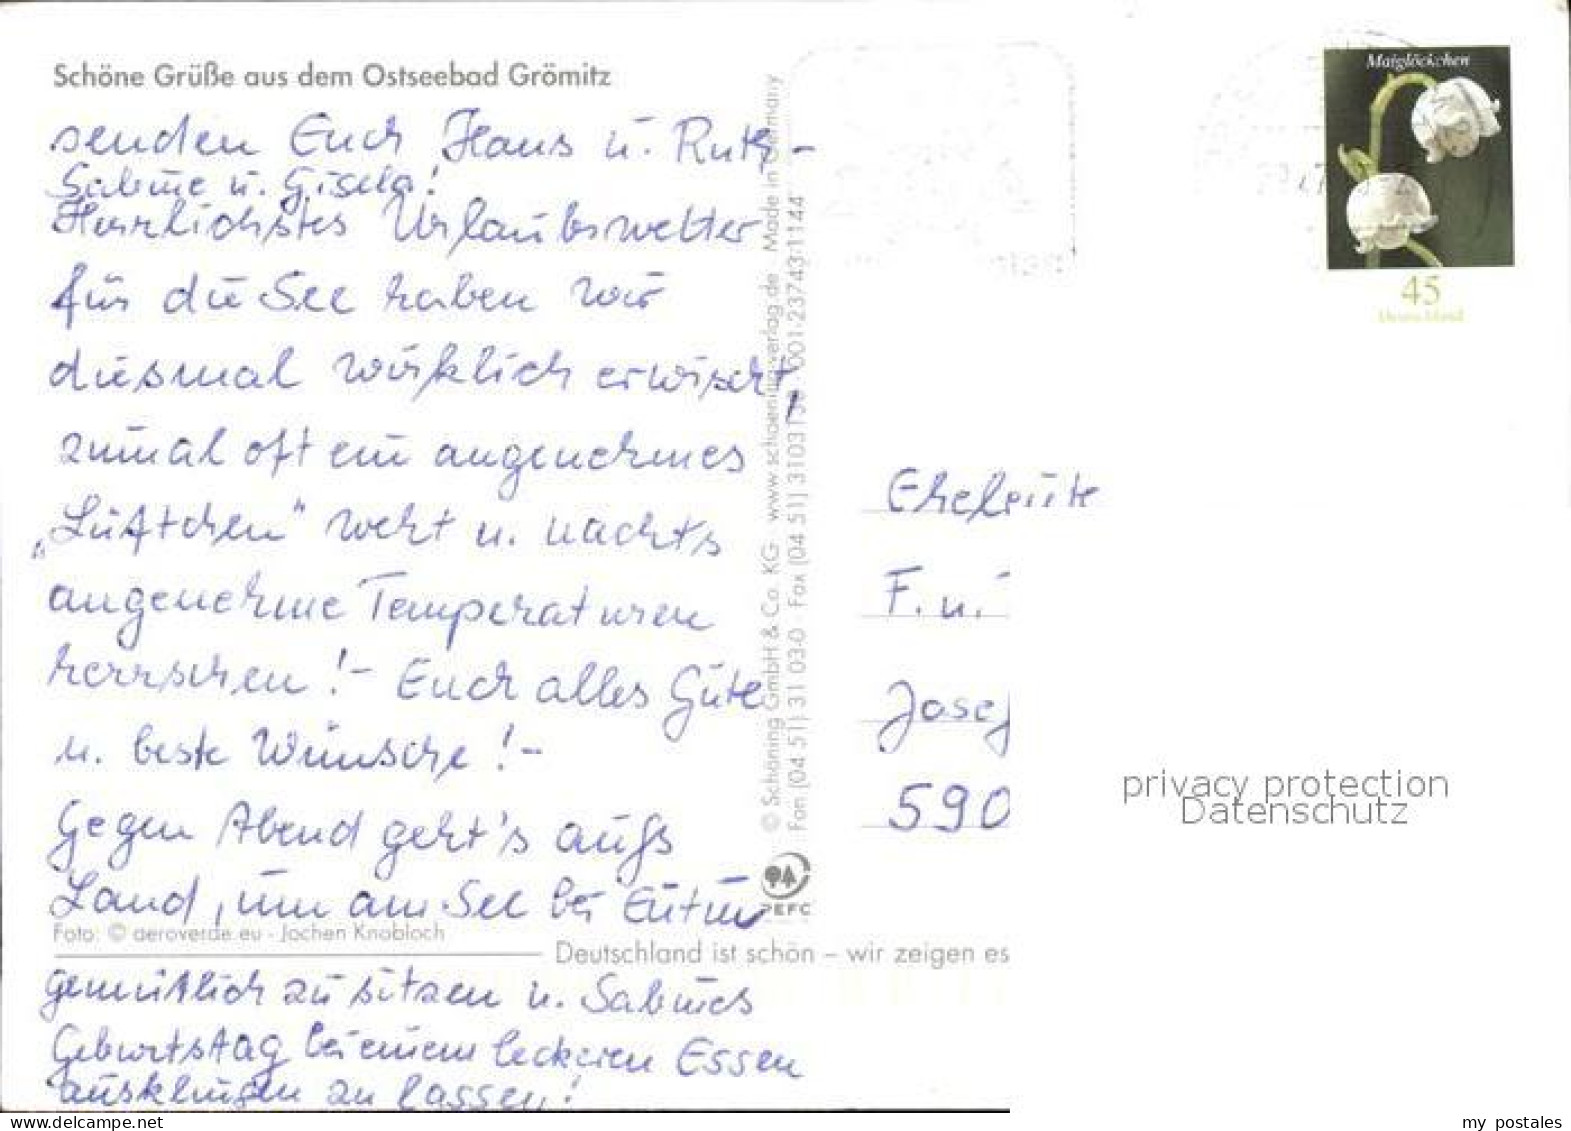 Schöne Grüße aus dem Ostseebad Grömitz
senden Euch Hans u. Ruth -
Sabine u. Gisela!
Herrlichstes Urlaubswetter
für die See haben wir
diesmal wirklich erwischt,
zumal oft ein angenehmes
„Lüftchen" weht u. nachts
angenehme Temperaturen
herrschen! - Euch alles Gute
u. beste Wünsche! -
Gegen Abend geht's aufs
Land, um am See bei Eutin
Foto: © aeroverde.eu - Jochen Knobloch
Deutschland ist schön – wir zeigen es
gemütlich zu sitzen u. Sabines
Geburtstag bei einem leckeren Essen
ausklingen zu lassen!
© Schöning GmbH & Co. KG · www.schoening-verlag.de · Made in Germany
Fon (04 51) 31 03-0 · Fax (04 51) 3103 001-23743-1144
PEFC
Maiglöckchen
45
Deutschland
Eheleute
F. u.
Josef
590
privacy protection
Datenschutz
delcampe.net
my_postales